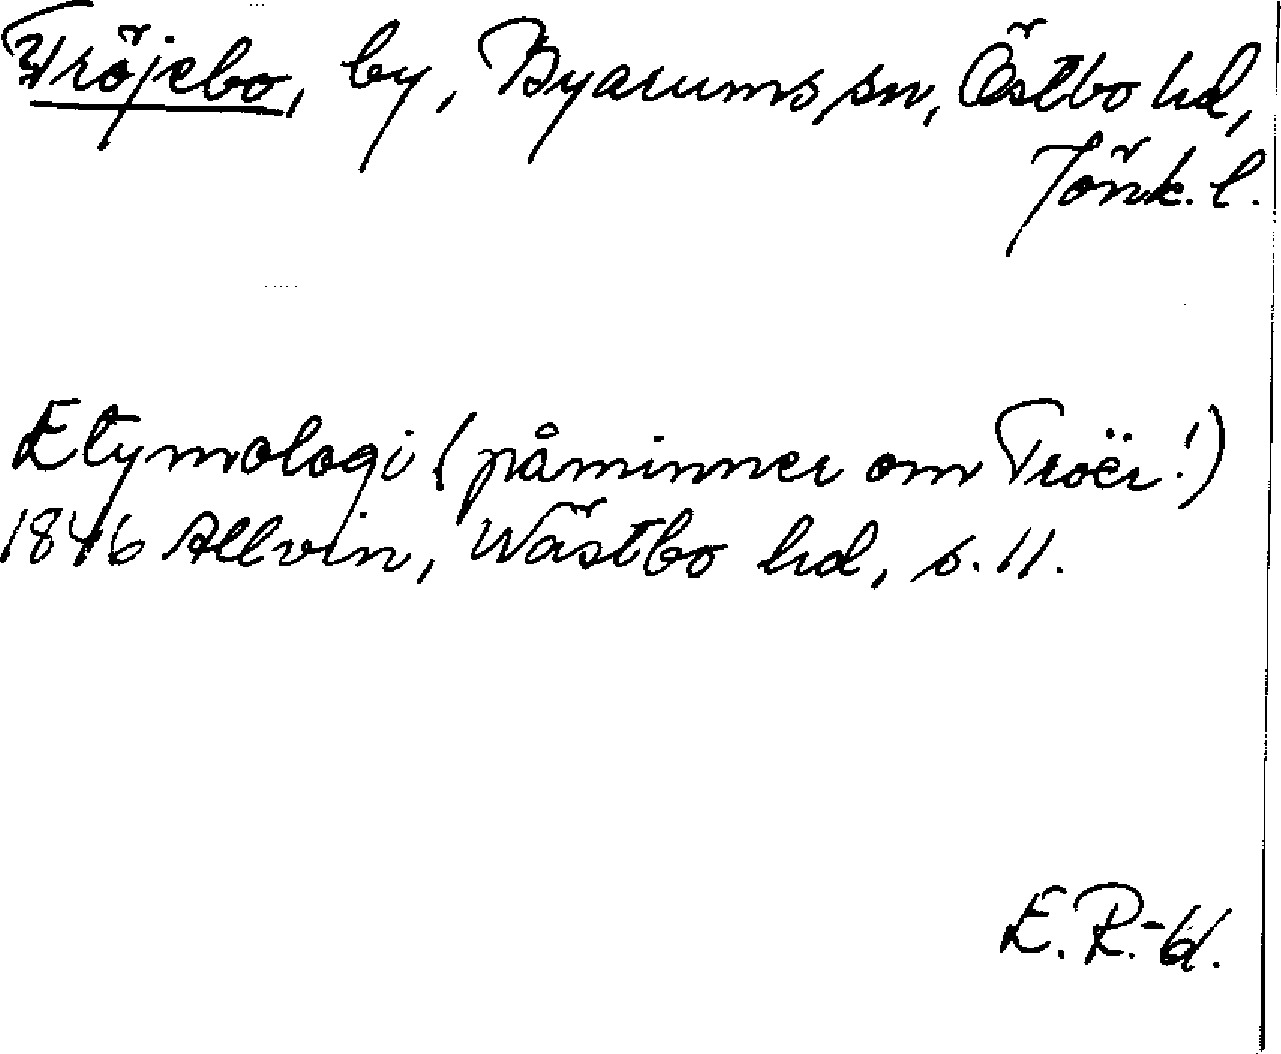 Tröjebo, by, Byarums sn, Östbo hd,
Jönk. l.
Etymologi (påminner om Tröer!)
1846 Allvin, Wästbo hd, s. 11.
E. R.-61.